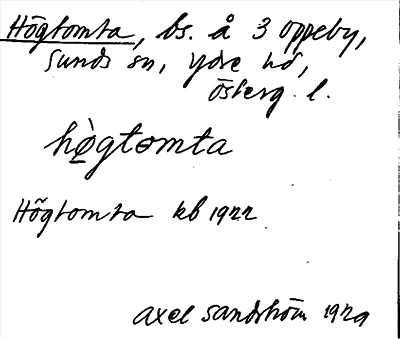 Högtomta, bs. å 3 Oppeby,
Sunds sn, Ydre hd,
Österg. l.
hø̀gtomta
Högtomta kb 1922
Axel Sandström 1929